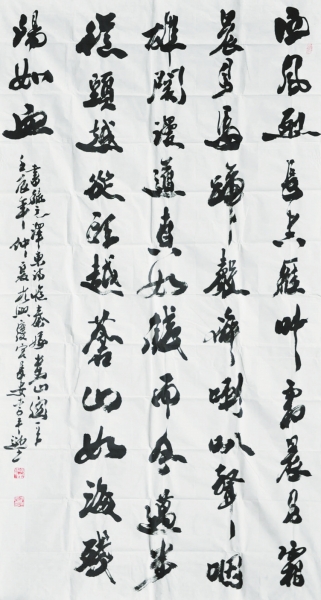 西風烈長空雁叫霜晨月霜
晨月馬蹄聲碎喇叭聲咽
雄關漫道真如鐵而今邁步
從頭越從頭越蒼山如海殘
陽如血
書錄毛澤東詞憶秦娥婁山關
壬辰年仲夏於興慶宮長安